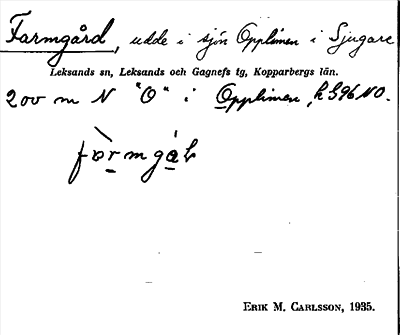 Farmgård, udde i sjön Opplimen i Sjugare
Leksands sn, Leksands och Gagnefs tg, Kopparbergs län.
200 m N "O" i Opplimen, k 396 NO.
Erik M. Carlsson, 1935.